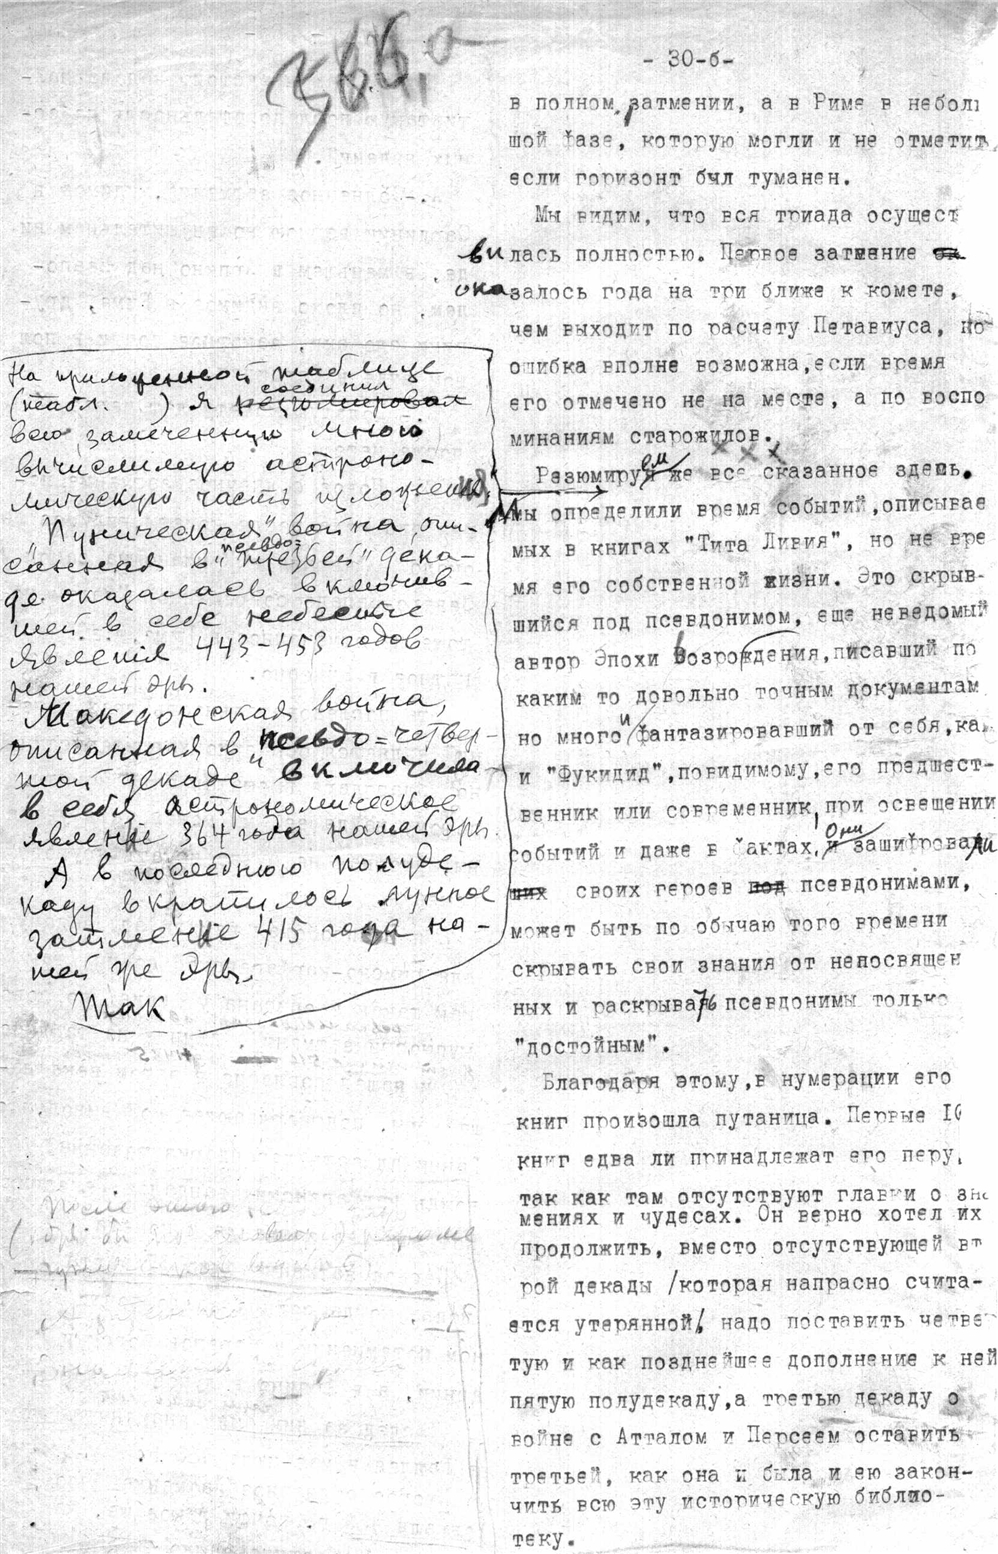 - 30-б-
в полном затмении, а в Риме в неболь
шой фазе, которую могли и не отметит
если горизонт был туманен.
Мы видим, что вся триада осущест
вилась полностью. Первое затмение
оказалось года на три ближе к комете,
чем выходит по расчету Петавиуса, но
ошибка вполне возможна, если время
его отмечено не на месте, а по воспо
минаниям старожилов.
х х х
Резюмируем же все сказанное здесь.
На приложенной таблице
(табл. ) я соединил
всю замеченную мною
вычислимую астроно-
мическую часть изложения.
„Пуническая" война, опи-
санная в "псевдо третьей" дека-
де оказалась включив-
шей в себе небесные
явления 443-453 годов
нашей эры.
Македонская война,
описанная в псевдо=четвер-
той декаде" включила
в себя астрономическое
явление 364 года нашей эры.
А в последнюю полуде-
каду вкратилось лунное
затмение 415 года на-
шей же эры.
Так
Мы определили время событий, описывае
мых в книгах "Тита Ливия", но не вре
мя его собственной жизни. Это скрыв-
шийся под псевдонимом, еще неведомый
автор Эпохи Возрождения, писавший по
каким то довольно точным документам
но много и фантазировавший от себя, как
и "Фукидид", повидимому, его предшест-
венник или современник, при освещении
событий и даже в фактах, Они зашифровали
своих героев псевдонимами,
может быть по обычаю того времени
скрывать свои знания от непосвящен
ных и раскрывать псевдонимы только
"достойным".
Благодаря этому, в нумерации его
книг произошла путаница. Первые 10
книг едва ли принадлежат его перу,
так как там отсутствуют главки о зна
мениях и чудесах. Он верно хотел их
продолжить, вместо отсутствующей вт
рой декады /которая напрасно счита-
ется утерянной/, надо поставить четвер
тую и как позднейшее дополнение к ней
пятую полудекаду, а третью декаду о
войне с Атталом и Персеем оставить
третьей, как она и была и ею закон-
чить всю эту историческую библио-
теку.